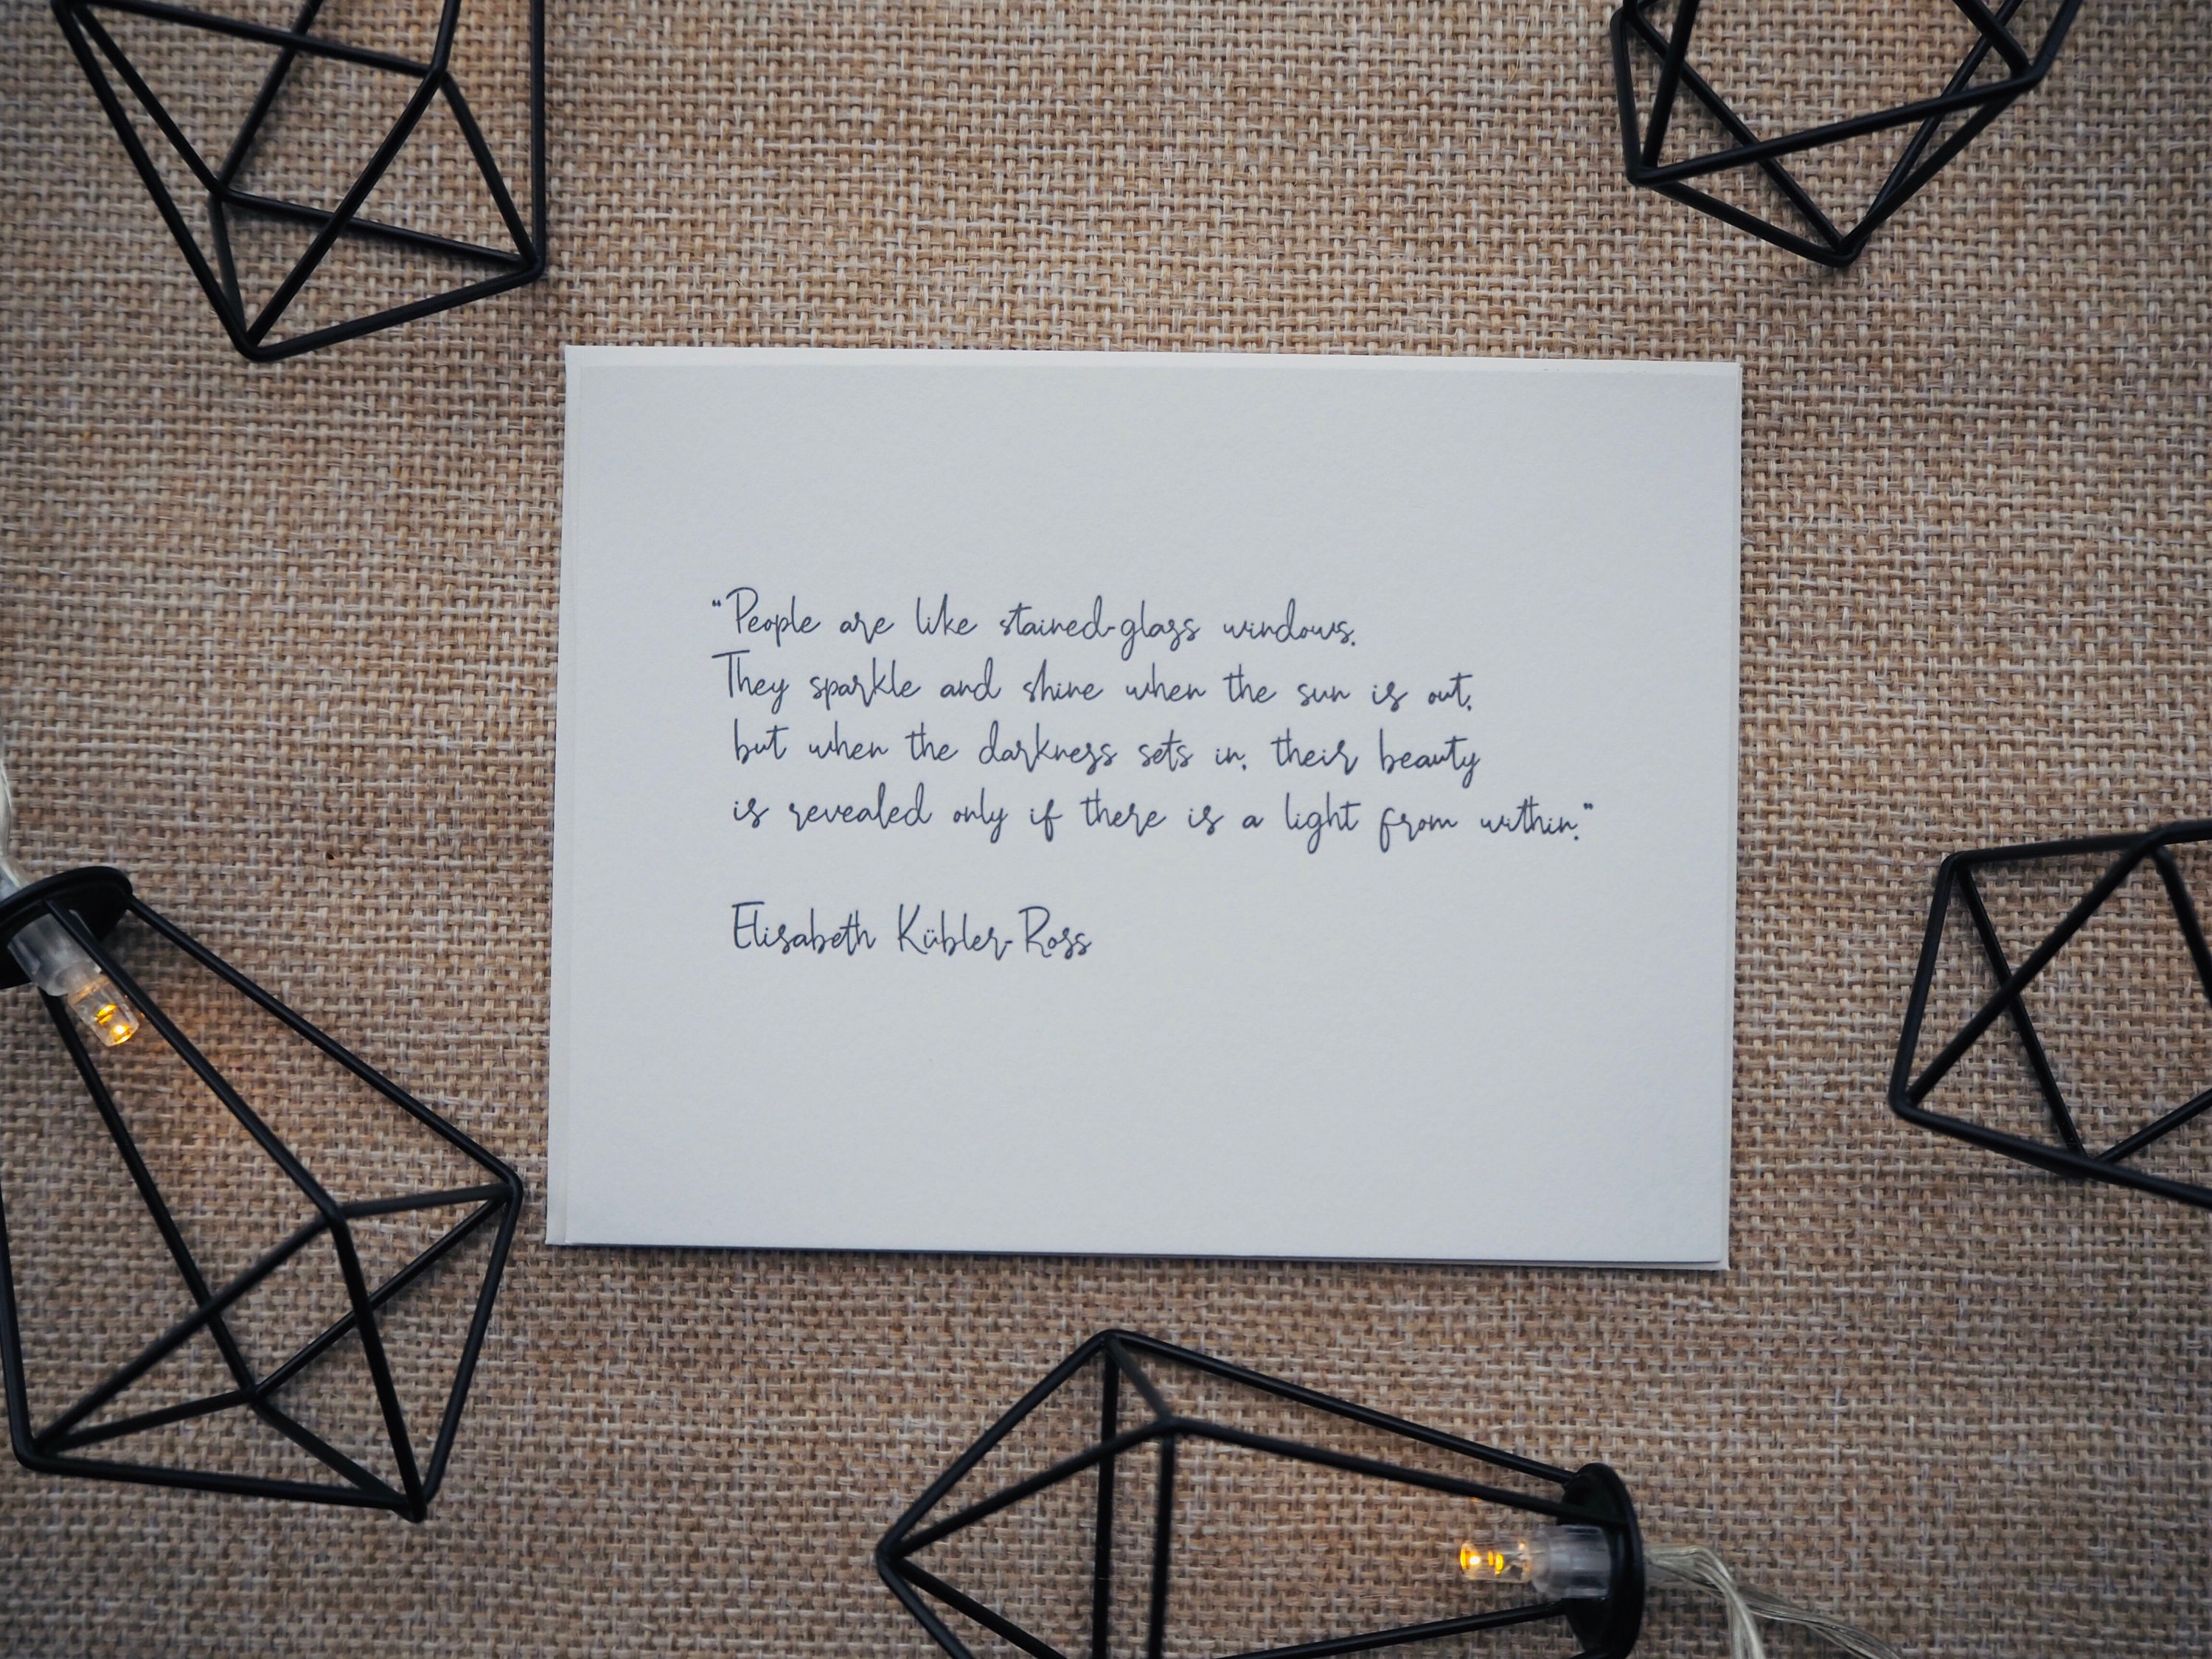 “People are like stained-glass windows.
They sparkle and shine when the sun is out,
but when the darkness sets in, their beauty
is revealed only if there is a light from within.”
Elisabeth Kübler-Ross